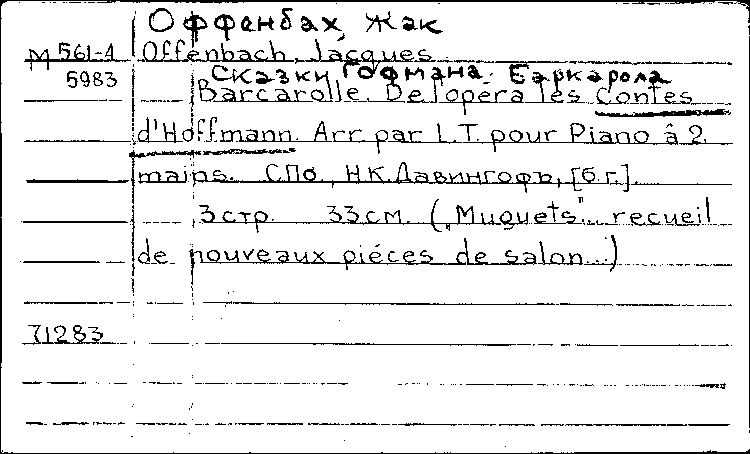 Оффенбах, Жак
М 561-4 Offenbach, Jacques
Сказки Гофмана. Баркарола
5983 Barcarolle. De l'opéra les Contes
d'Hoffmann. Arr. par L.T. pour Piano â 2
mains. СПб., Н.К.Давингофъ, [б.г.].
3 стр. 33 см. („Muguets". recueil
de nouveaux piéces de salon...)
71283